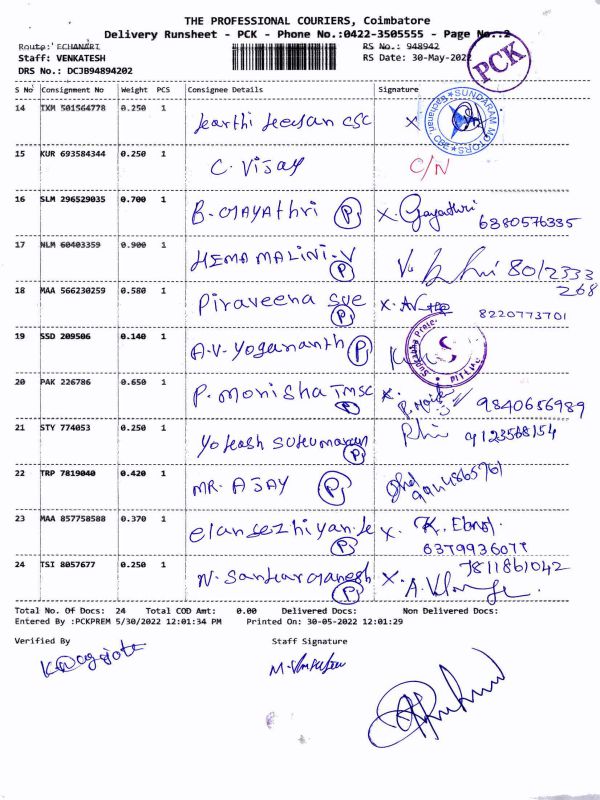 THE PROFESSIONAL COURIERS, Coimbatore
Delivery Runsheet - PCK - Phone No.:0422-3505555 - Page No.:2
Route: ECHANARI RS No.: 948942
Staff: VENKATESH RS Date: 30-May-2022
DRS No.: DCJB94894202
PCK
S No Consignment No Weight PCS Consignee Details Signature
14 IXM 501564778 0.250 1 CSC X
SUNDARAM MOTORS
15 KUR 693584344 0.250 1 C. Vijay C/N
16 SLM 296529035 0.700 1 B. GAYAthri P X. Gayathri 6380576335
17 NLM 60403359 0.900 1 HEMA MALINI.V P 80/2333
268
18 MAA 566230259 0.580 1 Piraveena Sve P X. 8220773701
19 SSD 209506 0.140 1 A.V. Yogananth P
20 PAK 226786 0.650 1 P. monisha TMSC P X. 9840656989
21 STY 774053 0.250 1 Yokesh Sukumaran P 9123568154
22 TRP 7819040 0.420 1 MR. AJAY P
23 MAA 857758588 0.370 1 elansezhiyan. P X. K.
24 TSI 8057677 0.250 1 N. Sankar Ganesh P X. A. 7811861042
Total No. Of Docs: 24 Total COD Amt: 0.00 Delivered Docs: Non Delivered Docs:
Entered By :PCKPREM 5/30/2022 12:01:34 PM Printed On: 30-05-2022 12:01:29
Verified By Staff Signature